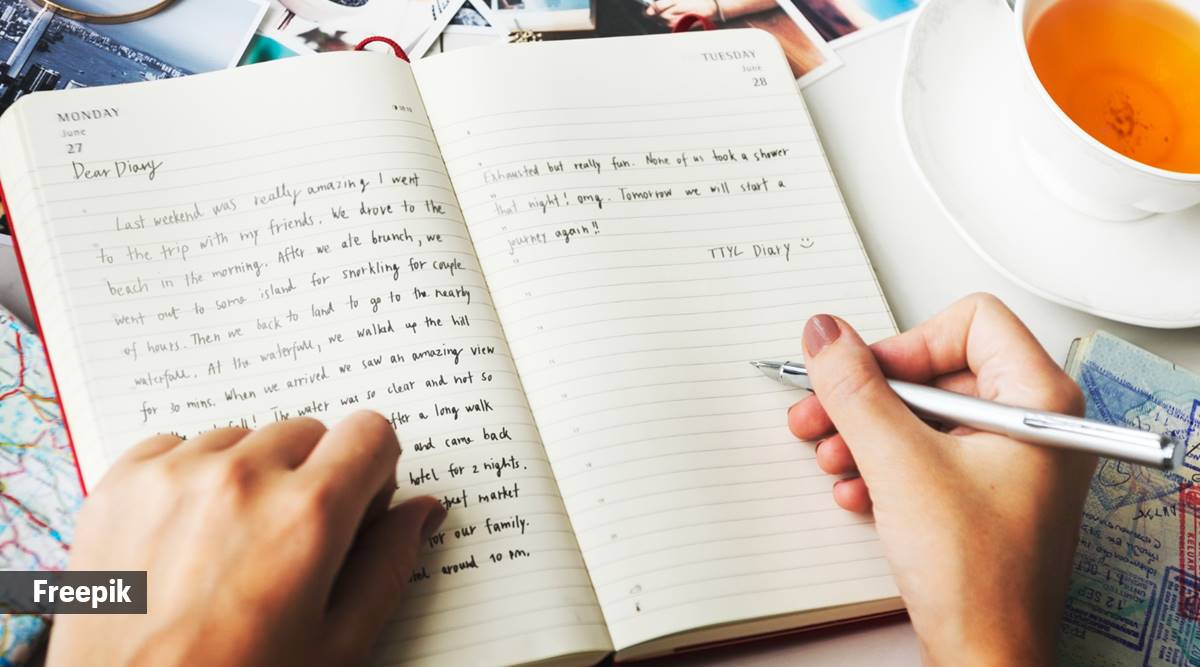 MONDAY
June
27
Dear Diary
Last weekend was really amazing I went
to the trip with my friends. We drove to the
beach in the morning. After we ate brunch, we
went out to some island for snorkling for couple
of hours. Then we back to land to go to the nearby
waterfall. At the waterfall, we walked up the hill
for 30 mins. When we arrived we saw an amazing view
The water was so clear and not so
after a long walk
and came back
hotel for 2 nights.
street market
for our family.
around 10 pm.
TUESDAY
June
28
Exhausted but really fun. None of us took a shower
that night! omg. Tomorrow we will start a
journey again!!
TTYL Diary
Freepik
12 SEP